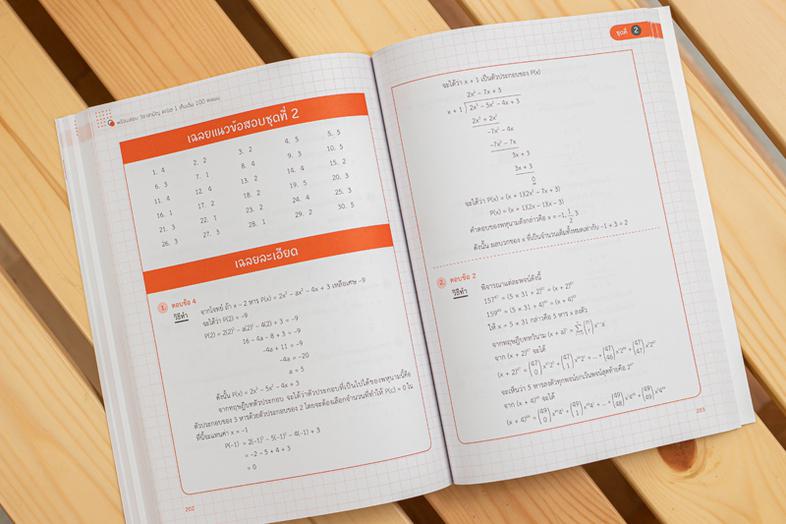 พร้อมสอบ วิชาสามัญ คณิต 1 เต็มเต็ม 100 คะแนน
เฉลยแนวข้อสอบชุดที่ 2
1. 4 2. 2 3. 2 4. 5 5. 5
6. 3 7. 1 8. 4 9. 3 10. 5
11. 4 12. 4 13. 2 14. 4 15. 2
16. 1 17. 2 18. 2 19. 5 20. 3
21. 3 22. 1 23. 2 24. 4 25. 3
26. 3 27. 3 28. 1 29. 2 30. 5
เฉลยละเอียด
1. ตอบข้อ 4
วิธีทำ จากโจทย์ ถ้า x − 2 หาร P(x) = 2x³ − ax² − 4x + 3 เหลือเศษ −9
จะได้ว่า P(2) = −9
P(2) = 2(2)³ − a(2)² − 4(2) + 3 = −9
16 − 4a − 8 + 3 = −9
−4a + 11 = −9
−4a = −20
a = 5
ดังนั้น P(x) = 2x³ − 5x² − 4x + 3
จากทฤษฎีบทตัวประกอบ จะได้ว่าตัวประกอบที่เป็นไปได้ของพหุนามนี้คือ
ตัวประกอบของ 3 หารด้วยตัวประกอบของ 2 โดยจะต้องเลือกจำนวนที่ทำให้ P(c) = 0 ใน
ที่นี้จะแทนค่า x = −1
P(−1) = 2(−1)³ − 5(−1)² − 4(−1) + 3
= −2 − 5 + 4 + 3
= 0
202
ชุดที่ 2
จะได้ว่า x + 1 เป็นตัวประกอบของ P(x)
2x² − 7x + 3
x + 1 2x³ − 5x² − 4x + 3
2x³ + 2x²
−7x² − 4x
−7x² − 7x
3x + 3
3x + 3
0
จะได้ว่า P(x) = (x + 1)(2x² − 7x + 3)
P(x) = (x + 1)(2x − 1)(x − 3)
คำตอบของพหุนามดังกล่าวคือ x = −1, 1/2, 3
ดังนั้น ผลบวกของ x ที่เป็นจำนวนเต็มทั้งหมดเท่ากับ −1 + 3 = 2
2. ตอบข้อ 2
วิธีทำ พิจารณาแต่ละพจน์ดังนี้
157⁴⁷ = (5 × 31 + 2)⁴⁷ = (x + 2)⁴⁷
159⁴⁹ = (5 × 31 + 4)⁴⁹ = (x + 4)⁴⁹
ให้ x = 5 × 31 กล่าวคือ 5 หาร x ลงตัว
จากทฤษฎีบททวินาม
จาก (x + 2)⁴⁷ จะได้
จะเห็นว่า 5 หารลงตัวทุกพจน์ยกเว้นพจน์สุดท้ายคือ 2⁴⁷
จาก (x + 4)⁴⁹ จะได้
203